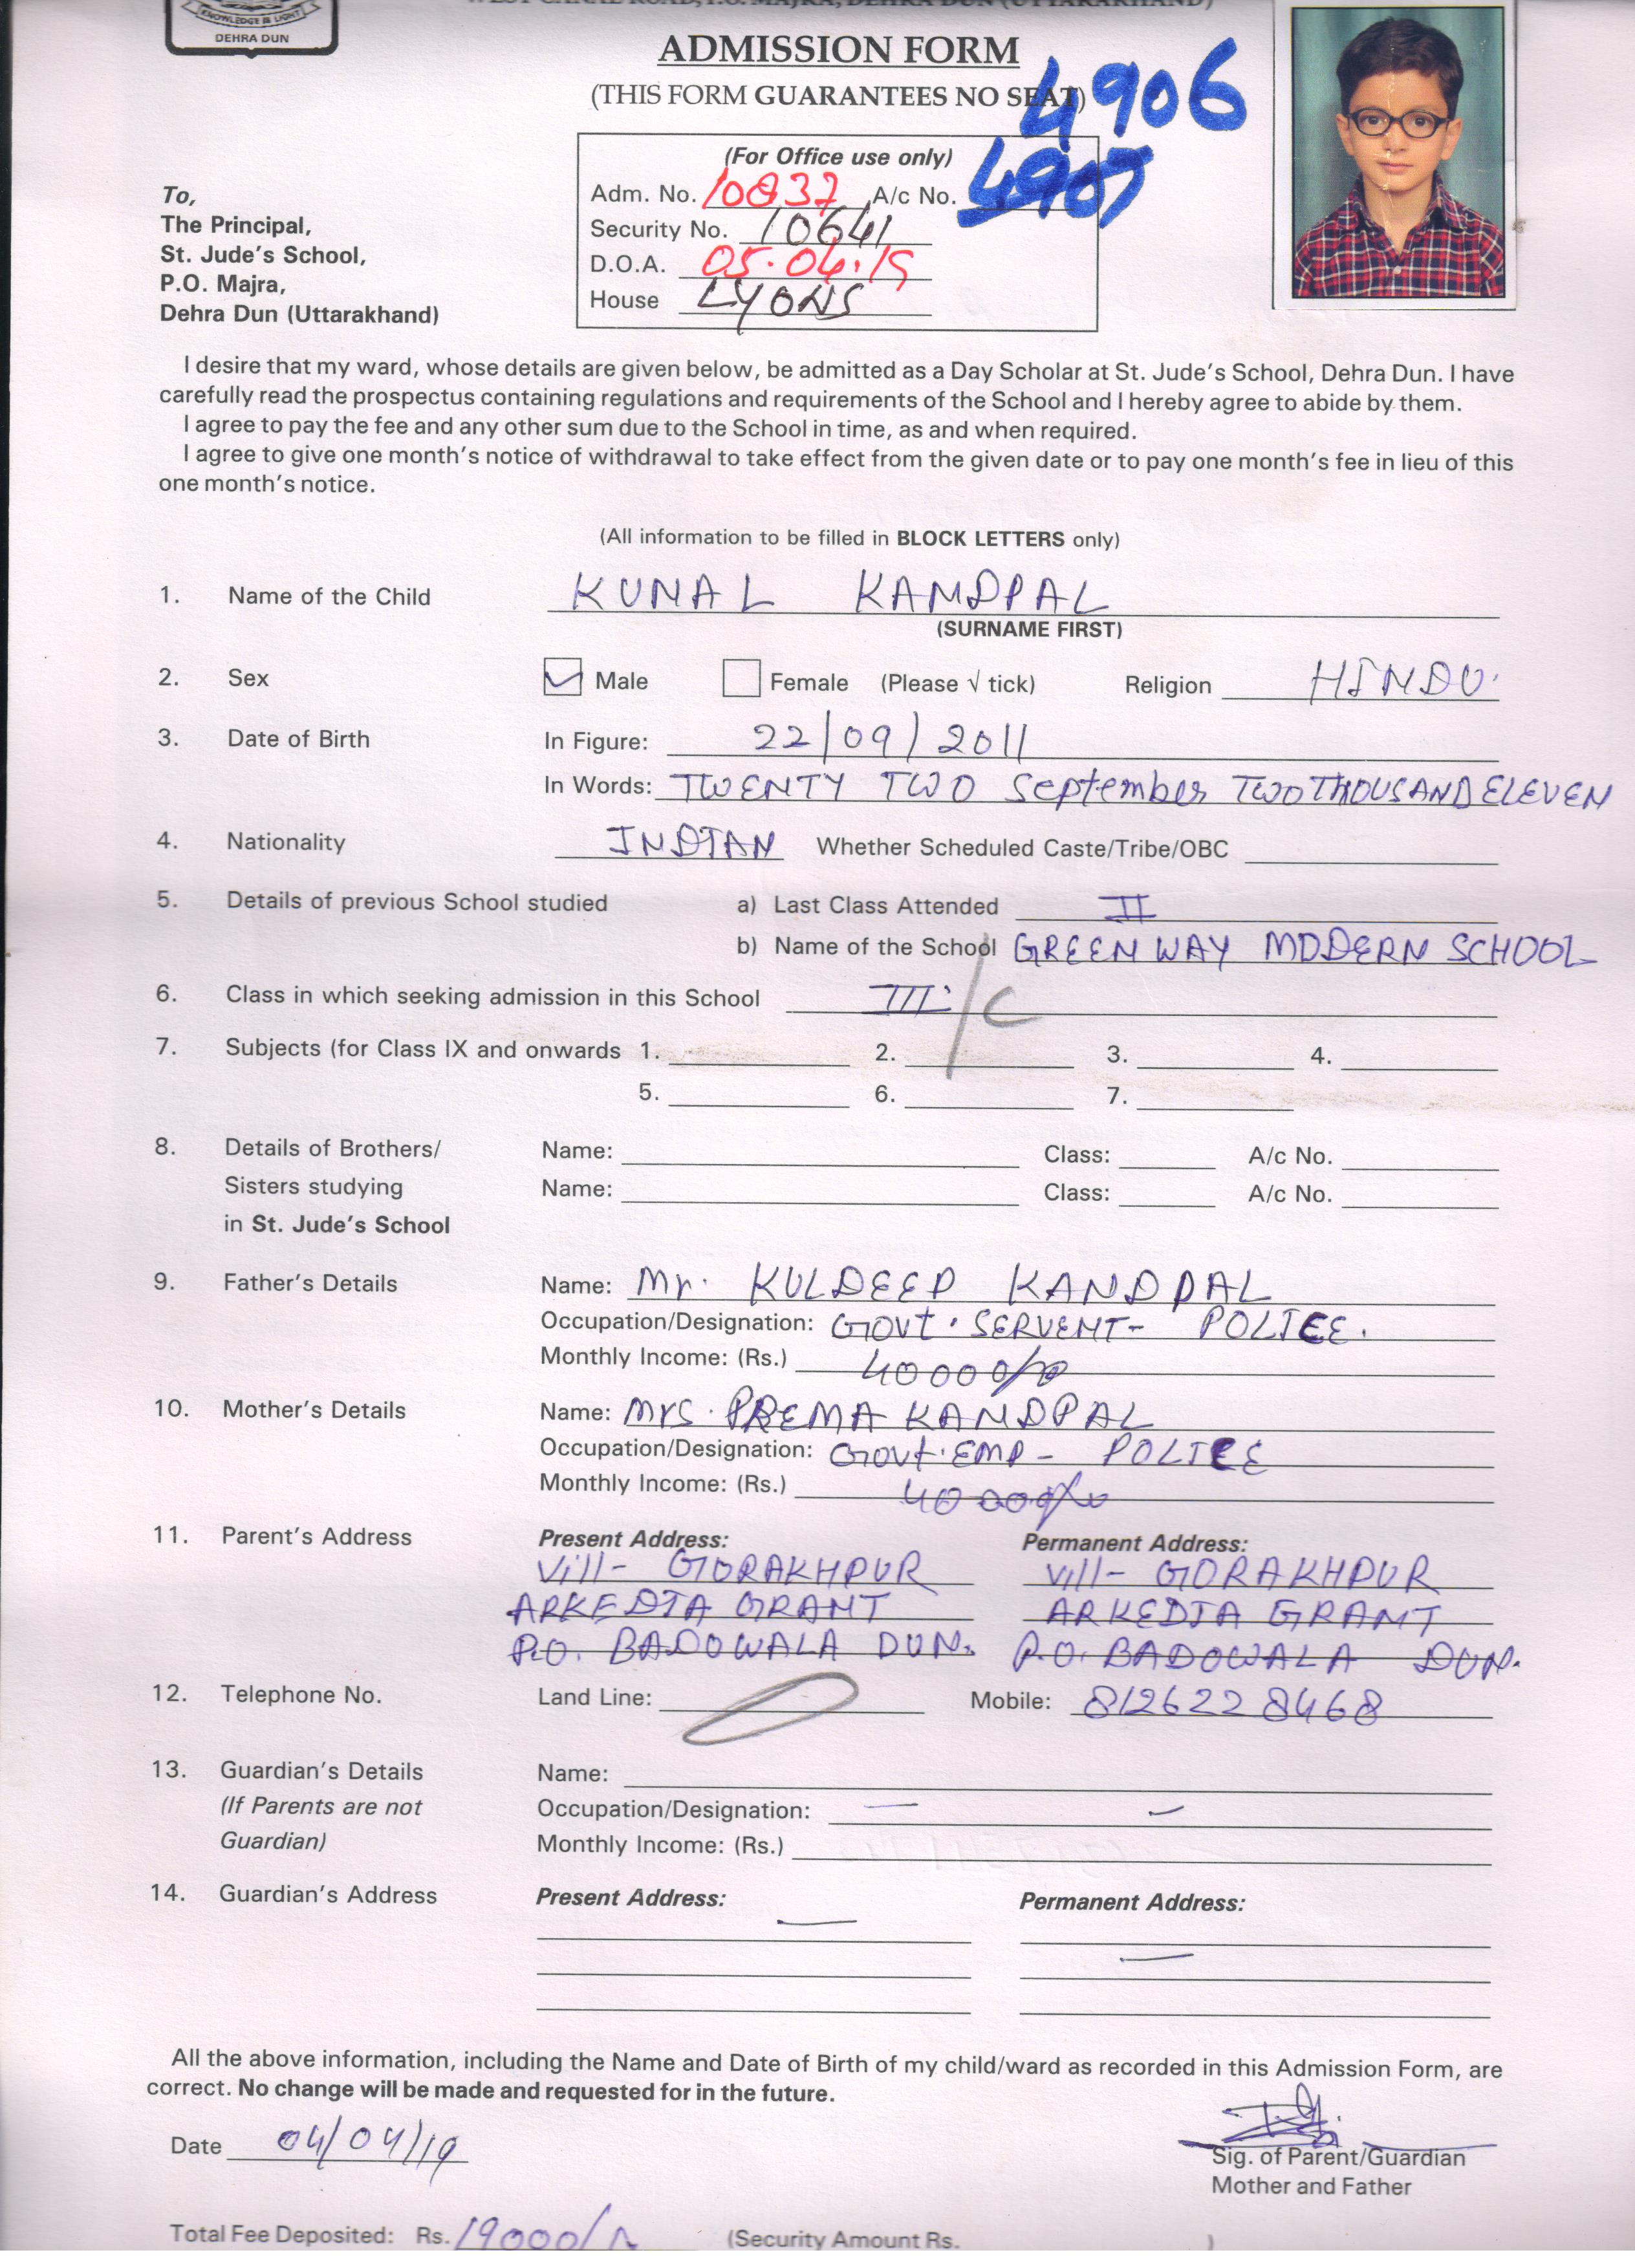 KNOWLEDGE IS LIGHT
DEHRA DUN
WEST CANAL ROAD, P.O. MAJRA, DEHRA DUN (UTTARAKHAND)
ADMISSION FORM
(THIS FORM GUARANTEES NO SEAT)
4906
(For Office use only)
Adm. No. 10837 A/c No. 4907
Security No. 10641
D.O.A. 05.04.19
House LYONS
To,
The Principal,
St. Jude's School,
P.O. Majra,
Dehra Dun (Uttarakhand)
I desire that my ward, whose details are given below, be admitted as a Day Scholar at St. Jude's School, Dehra Dun. I have
carefully read the prospectus containing regulations and requirements of the School and I hereby agree to abide by them.
I agree to pay the fee and any other sum due to the School in time, as and when required.
I agree to give one month's notice of withdrawal to take effect from the given date or to pay one month's fee in lieu of this
one month's notice.
(All information to be filled in BLOCK LETTERS only)
1. Name of the Child KUNAL KANDPAL
(SURNAME FIRST)
2. Sex Male Female (Please √ tick) Religion HINDU
3. Date of Birth In Figure: 22/09/2011
In Words: TWENTY TWO September TWO THOUSAND ELEVEN
4. Nationality INDIAN Whether Scheduled Caste/Tribe/OBC
5. Details of previous School studied a) Last Class Attended II
b) Name of the School GREEN WAY MODERN SCHOOL
6. Class in which seeking admission in this School III / C
7. Subjects (for Class IX and onwards 1. 2. 3. 4.
5. 6. 7.
8. Details of Brothers/ Name: Class: A/c No.
Sisters studying Name: Class: A/c No.
in St. Jude's School
9. Father's Details Name: Mr. KULDEEP KANDPAL
Occupation/Designation: GOVT. SERVENT- POLICE.
Monthly Income: (Rs.) 40000/-
10. Mother's Details Name: Mrs. PREMA KANDPAL
Occupation/Designation: GOVT. EMP - POLICE
Monthly Income: (Rs.) 40000/-
11. Parent's Address Present Address: Permanent Address:
Vill- GORAKHPUR Vill- GORAKHPUR
ARKEDIA GRANT ARKEDIA GRANT
P.O. BADOWALA DUN. P.O. BADOWALA DUN.
12. Telephone No. Land Line: Mobile: 8126228468
13. Guardian's Details Name:
(If Parents are not Occupation/Designation: — —
Guardian) Monthly Income: (Rs.)
14. Guardian's Address Present Address: Permanent Address:
— —
All the above information, including the Name and Date of Birth of my child/ward as recorded in this Admission Form, are
correct. No change will be made and requested for in the future.
Date 04/04/19
Sig. of Parent/Guardian
Mother and Father
Total Fee Deposited: Rs. 19000/- (Security Amount Rs. )